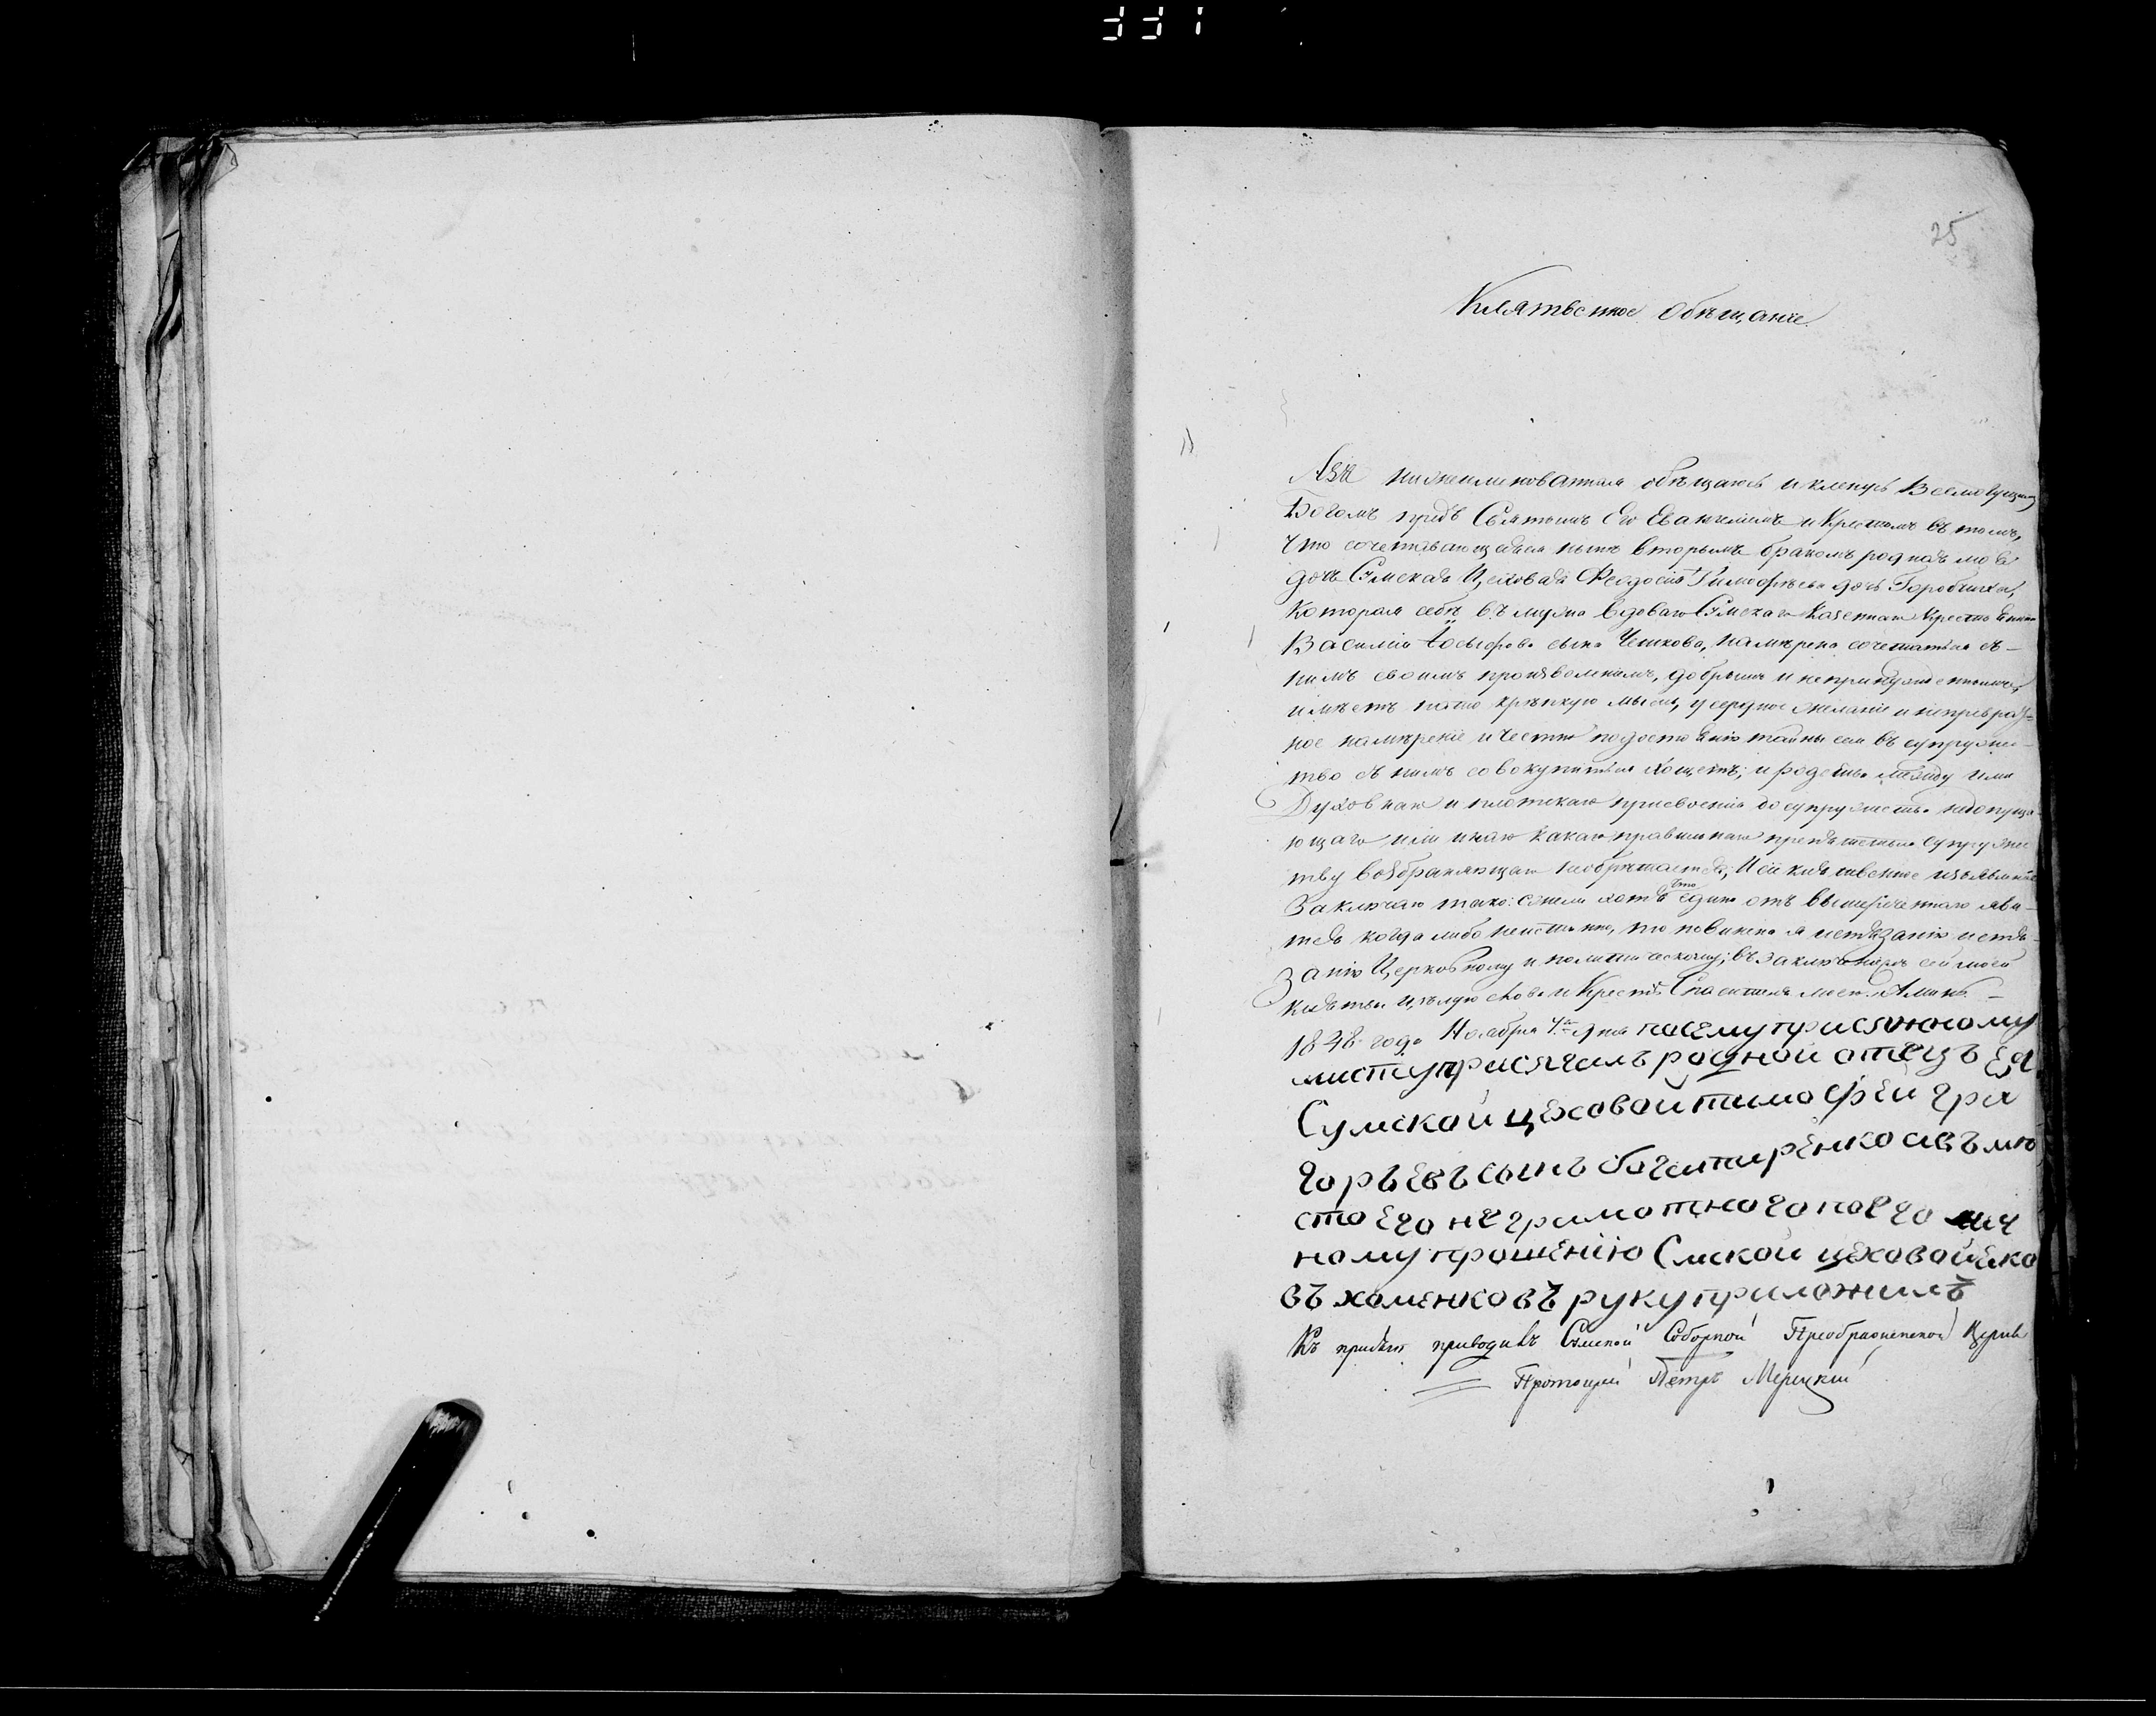 331
25
Клятвенное обѣщаніе
Азъ нижеименованный обѣщаюсь и кленусь Всемогущимъ
Богомъ предъ Святымъ Его Евангеліемъ и Крестомъ въ томъ,
что сочетавающаяся нынѣ вторымъ бракомъ родная моя
дочь Сумская Цеховая Феодосія Тимофѣева дочь
которая себѣ въ мужа вдоваго Сумскаго Казеннаго Крестьянина
Василія Іосифова сына намѣрена сочетатися съ
нимъ своимъ произволеніемъ, добрымъ и непринужденнымъ,
имѣетъ на то крѣпкую мысль, усердное желаніе и непреврат-
ное намѣреніе и честно по достоянію тайны сея въ супружес-
тво съ нимъ совокупитися хощетъ; и родства между ими
Духовнаго и плотскаго присвоенія до супружества недопуща
ющаго или инаго какаго правильнаго препятствія супружес
тву возбраняющаго необрѣтается; И сіе клятвенное изъявленіе
Заключаю тако: если хотя что едино отъ вышереченнаго яви-
тся когда либо неистинно, то повиненъ я истязанію истя-
занію Церковному и политическому; въ заключеніе сей моей
клятвы цѣлую слова и Крестъ Спасителя моего. Аминь. —
1848 года Ноября 4го дня посему присяжному
листу присягалъ родной отецъ Ея
Сумской цеховой тимофей гри
горьевъ сынъ авъмю
сто Его не грамотного поего лич
ному прошенію Смской цеховой Яко
въ хоменковъ руку приложилъ
Къ присягѣ приводилъ Сумской Соборной Преображенской Церкви
Протоіерей Петръ